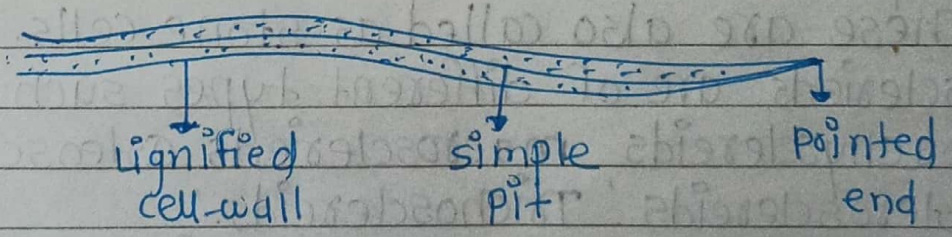 Lignified
cell-wall
simple
pit
pointed
end